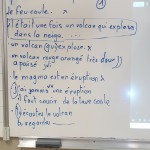 le feu coule. x
1
il était une fois un volcan qui explosa
dans la neige. ...
un volcan qui explose. x
un volcan rouge orangé très
apaisé
le magma est en éruption x
j'ai jamais vu une éruption
il faut courir de la lave coule
le volcan
tu regardes